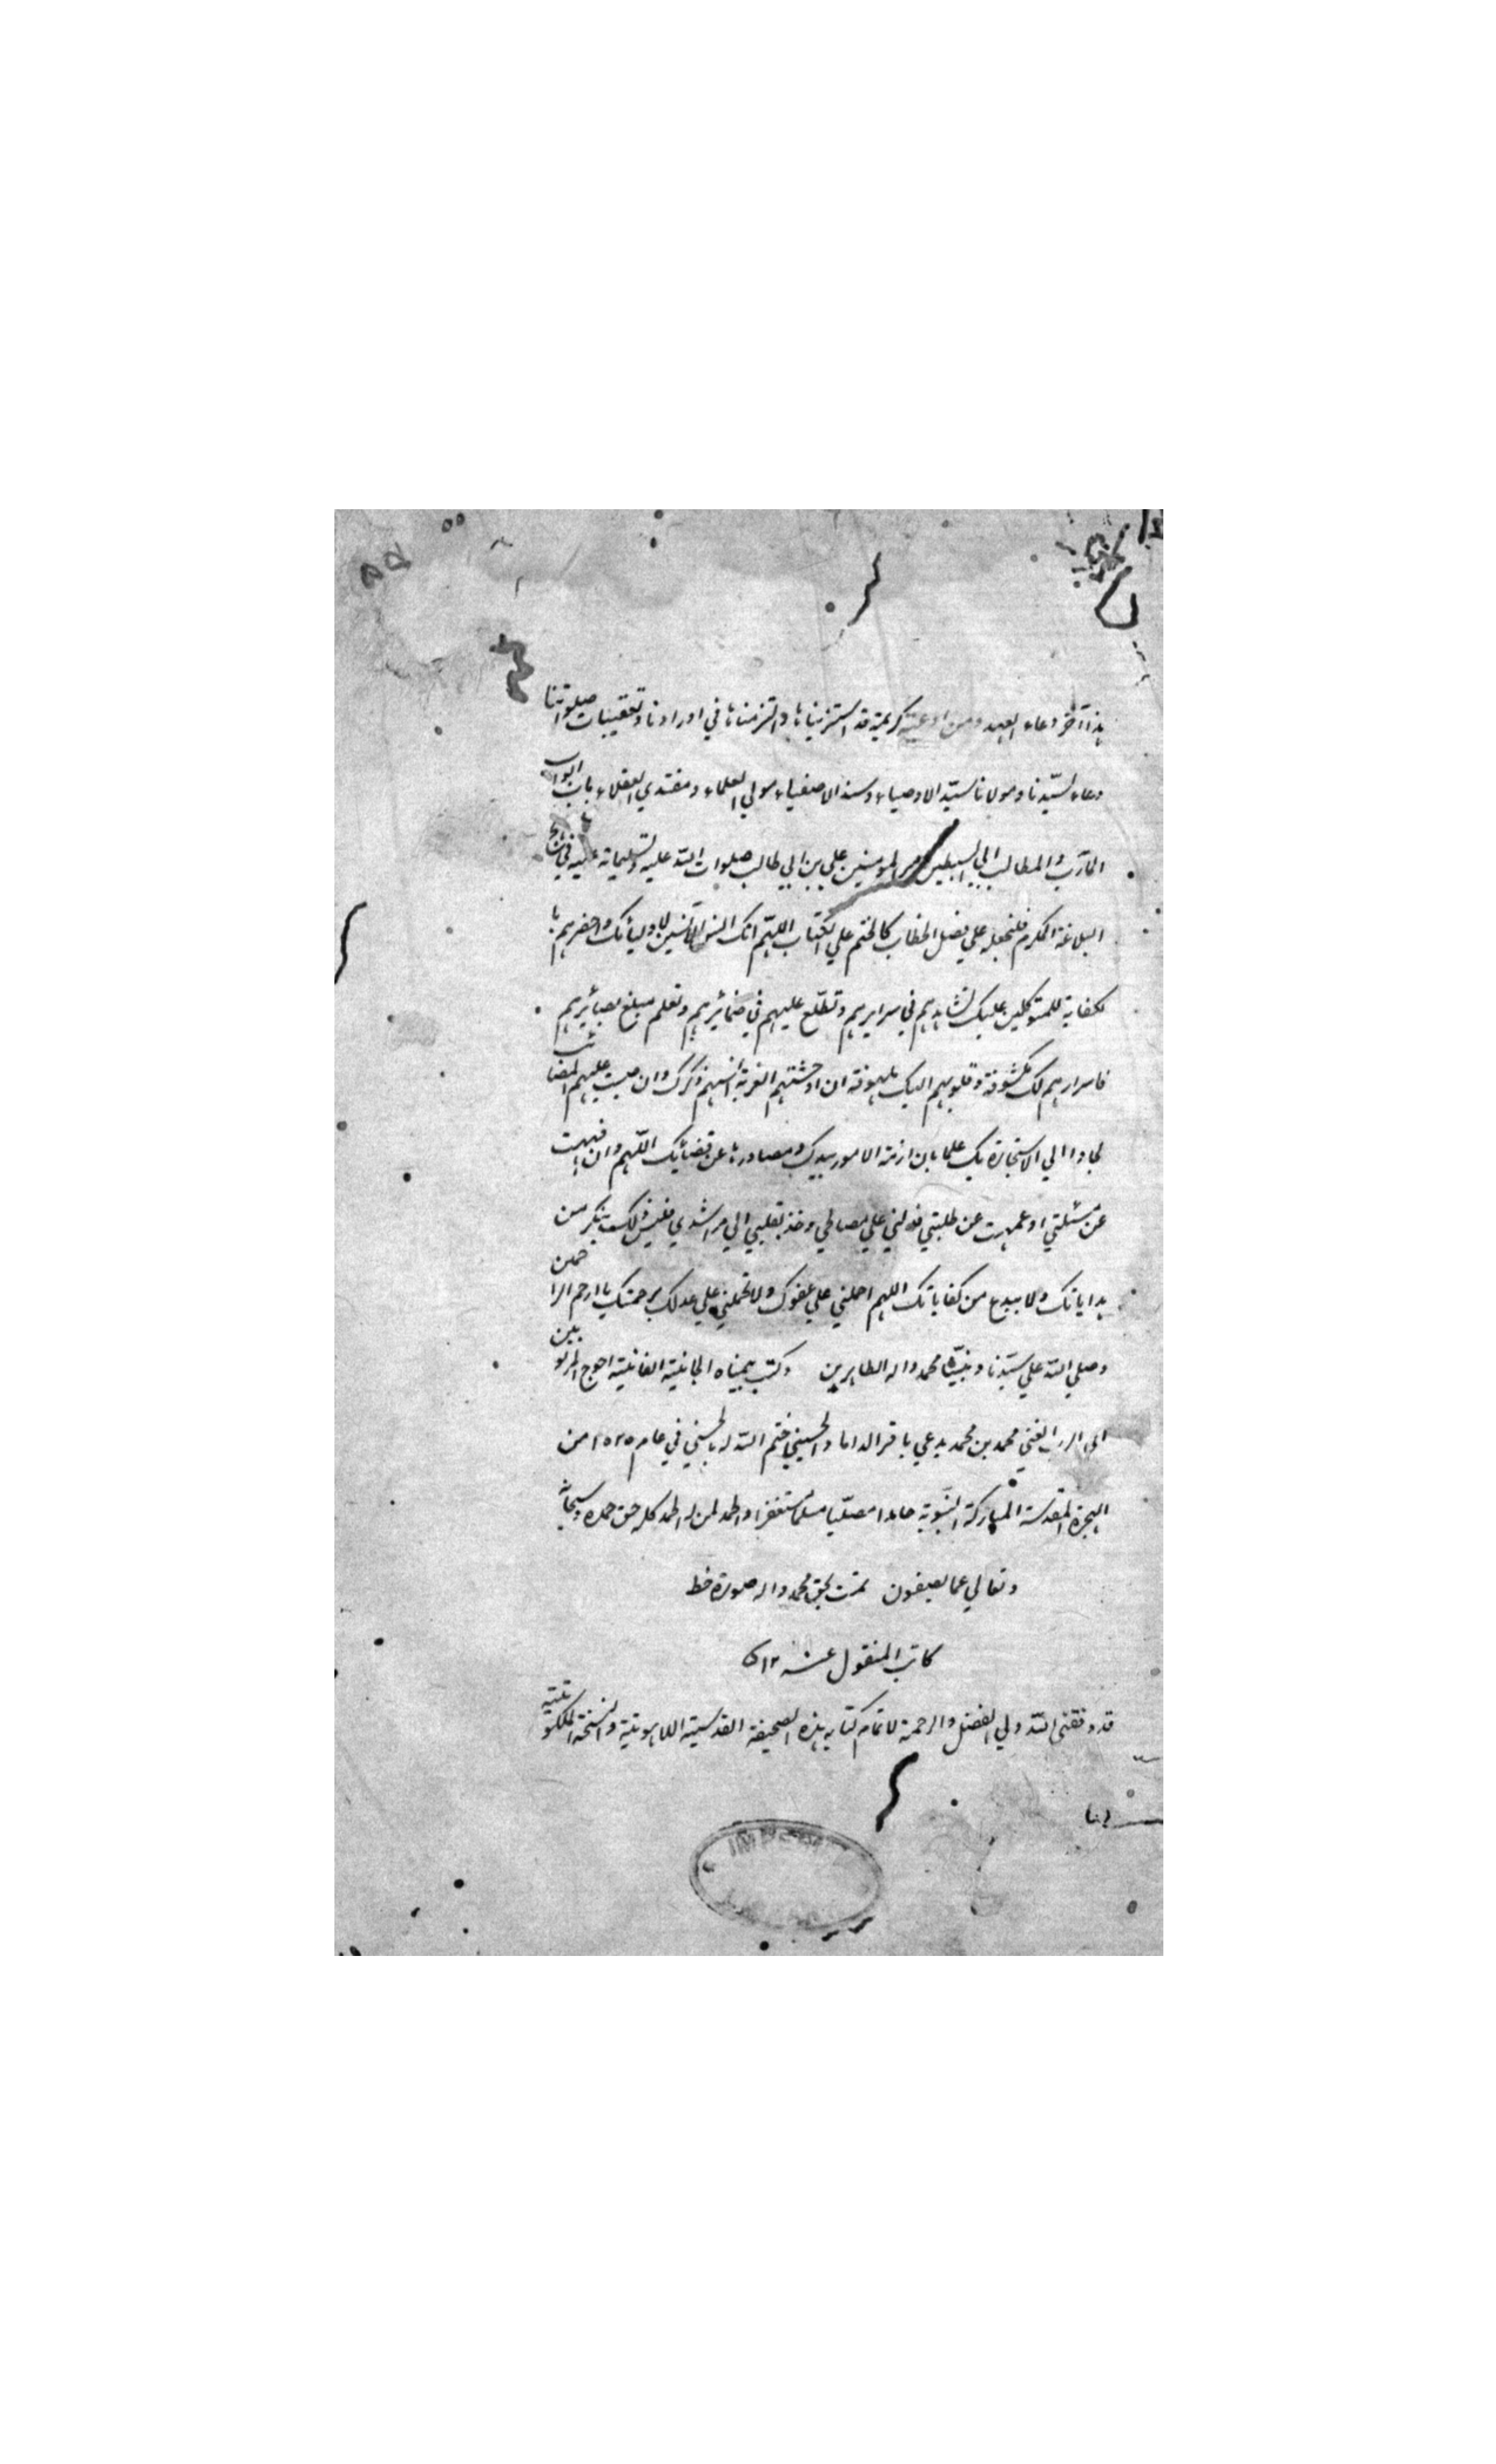 هذا آخر دعاء العهد ومن ادعية كريمة قد استزنياها والتزمناها في اورادنا وتعقيبات صلوتنا
دعاء لسيّدنا ومولانا سيّد الاوصياء وسند الاصفياء مولي العلماء ومقتدي العقلاء باب ابواب
المآرب والمطالب ابي السبطين امير المومنين علي بن ابي طالب صلوات الله عليه وتسليماته عليه في نهج
البلاغة المكرم فلنجعله علي فصل الخطاب كالختم علي الكتاب اللهم انك انس الآنسين لاوليائك واحضرهم با
لكفاية للمتوكلين عليك تشاهدهم في سرايرهم وتطّلع عليهم في ضمائرهم وتعلم مبلغ بصائرهم
فاسرارهم لك مكشوفة وقلوبهم اليك ملهوفة ان اوحشتهم الغربة آنسهم ذكرك وان صبت عليهم المصائب
لجاوا الي الاستجارة بك علما بان ازمّة الامور بيدك ومصادرها عن قضائك اللهم وان فههت
عن مسئلتي او عمهت عن طلبتي فدلني علي مصالحي وخذ بقلبي الي مراشدي فليس ذلك بنكر من
هداياتك ولا ببدع من كفاياتك اللهم احملني علي عفوك ولا تحملني علي عدلك برحمتك يا ارحم الراحمين
وصلي الله علي سيّدنا ونبيّنا محمد واله الطاهرين وكتب بيمناه الجانية الفانية احوج المربوبين
الى الرب الغني محمد بن محمد يدعي باقر الداماد الحسيني ختم الله له بالحسني في عام ١٠٢٥ من
الهجرة المقدسة المباركة النبوية حامدا مصلّيا مسلّما مستغفرا والحمد لمن له الحمد كله حق حمده وسبحانه
وتعالي عما يصفون تمت بحق محمد واله صورة خط
كاتب المنقول عنه ١٢
قد وفقنى الله ولي الفضل والرحمة لاتمام كتابه هذه الصحيفة القدسية اللاهوتية والنسخة الملكوتية